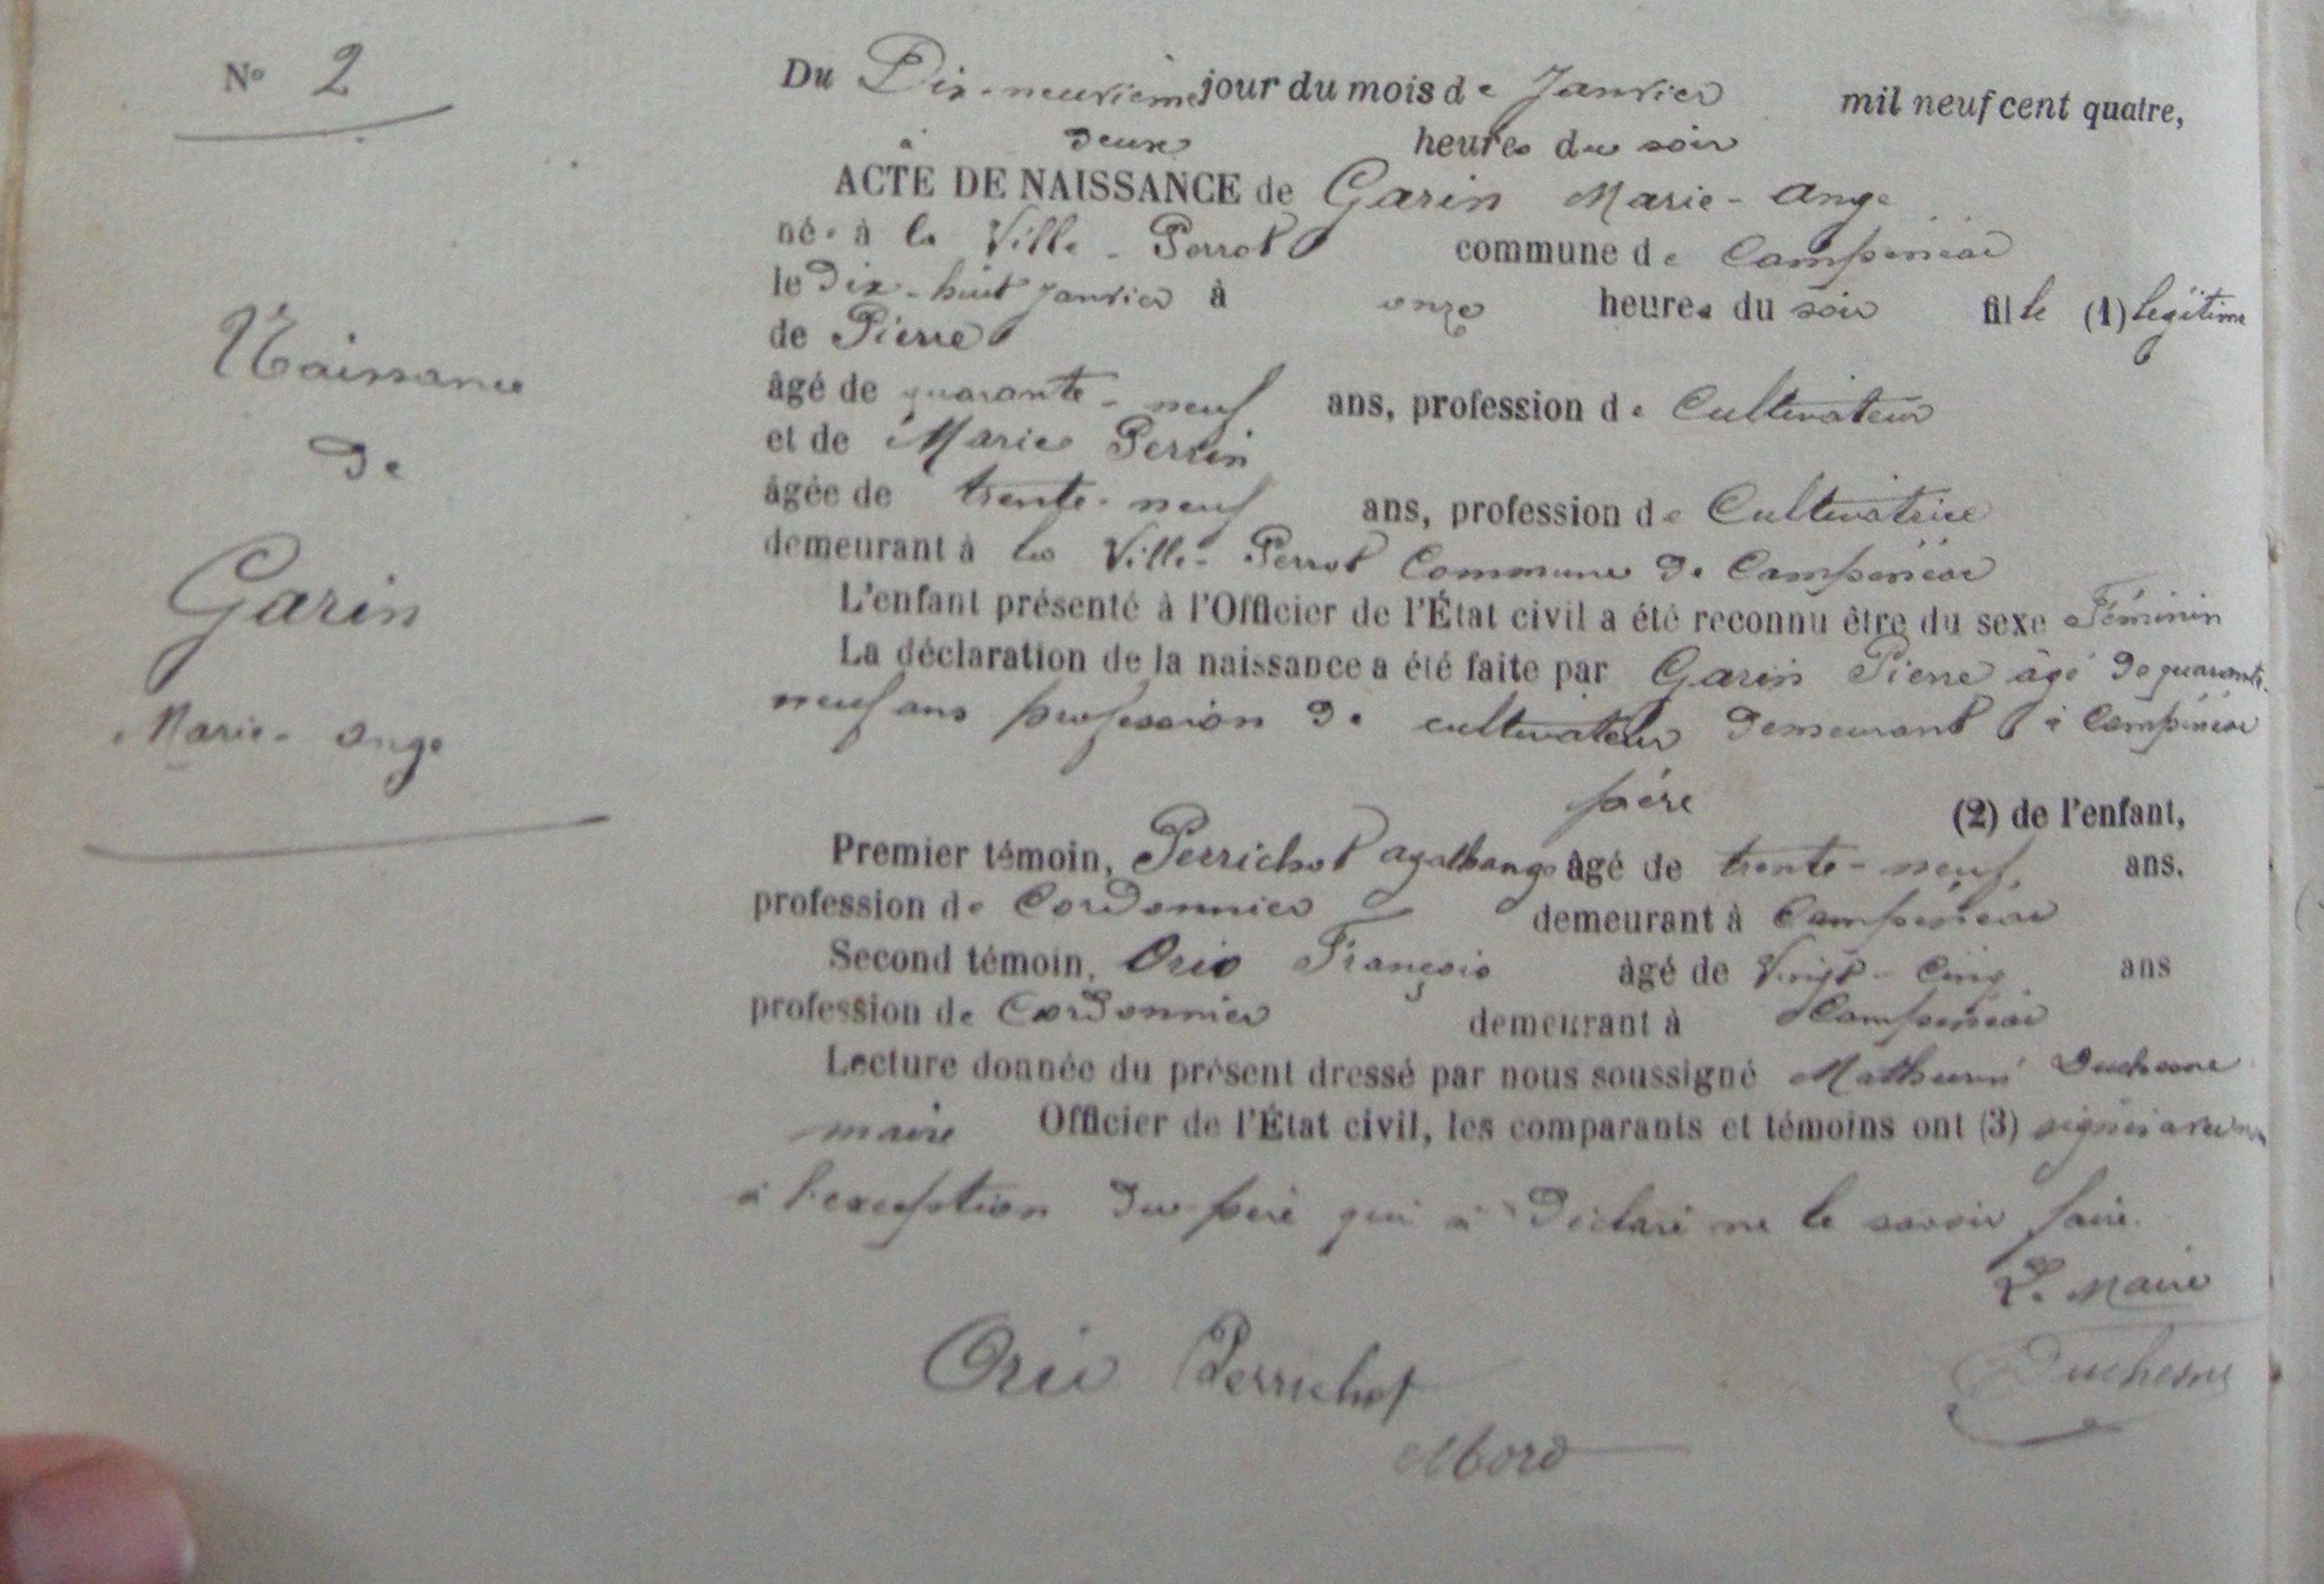 N° 2
Naissance
de
Garin
Marie-Ange
Du Dix-neuvième jour du mois de Janvier mil neuf cent quatre,
à deux heures du soir
ACTE DE NAISSANCE de Garin Marie-Ange
née à la Ville-Perrot commune de Campénéac
le Dix-huit Janvier à onze heures du soir fille (1) légitime
de Pierre
âgé de quarante-neuf ans, profession de Cultivateur
et de Marie Perrin
âgée de trente-neuf ans, profession de Cultivatrice
demeurant à la Ville-Perrot Commune de Campénéac
L'enfant présenté à l'Officier de l'État civil a été reconnu être du sexe Féminin
La déclaration de la naissance a été faite par Garin Pierre âgé de quarante-
neuf ans profession de cultivateur demeurant à Campénéac
père (2) de l'enfant,
Premier témoin, Perrichot Agathange âgé de trente-neuf ans.
profession de Cordonnier demeurant à Campénéac
Second témoin, Orio François âgé de Vingt-Cinq ans
profession de Cordonnier demeurant à Campénéac
Lecture donnée du présent dressé par nous soussigné Mathurin Duchesne
maire Officier de l'État civil, les comparants et témoins ont (3) signés avec nous
à l'exception du père qui a déclaré ne le savoir faire.
Le Maire
Orio Perrichot Duchesne